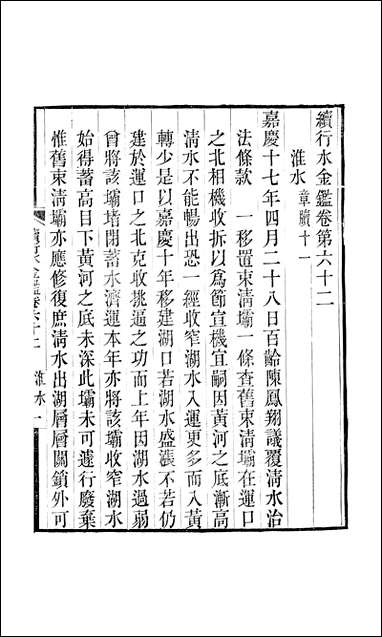 續行水金鑑卷第六十二
淮水 章牘十一
嘉慶十七年四月二十八日百齡陳鳳翔議覆淸水治
法條款 一移置束淸壩一條查舊束淸壩在運口
之北相機收拆以爲節宣機宜嗣因黃河之底漸高
淸水不能暢出恐一經收窄湖水入運更多而入黃
轉少是以嘉慶十年移建湖口若湖水盛漲不若仍
建於運口之北克收挑逼之功而上年因湖水過弱
曾將該壩堵閉蓄水濟運本年亦將該壩收窄湖水
始得蓄高目下黃河之底未深此壩未可遽行廢棄
惟舊束淸壩亦應修復庶淸水出湖層層關鎖外可
續行水金鑑卷六十二 淮水 一